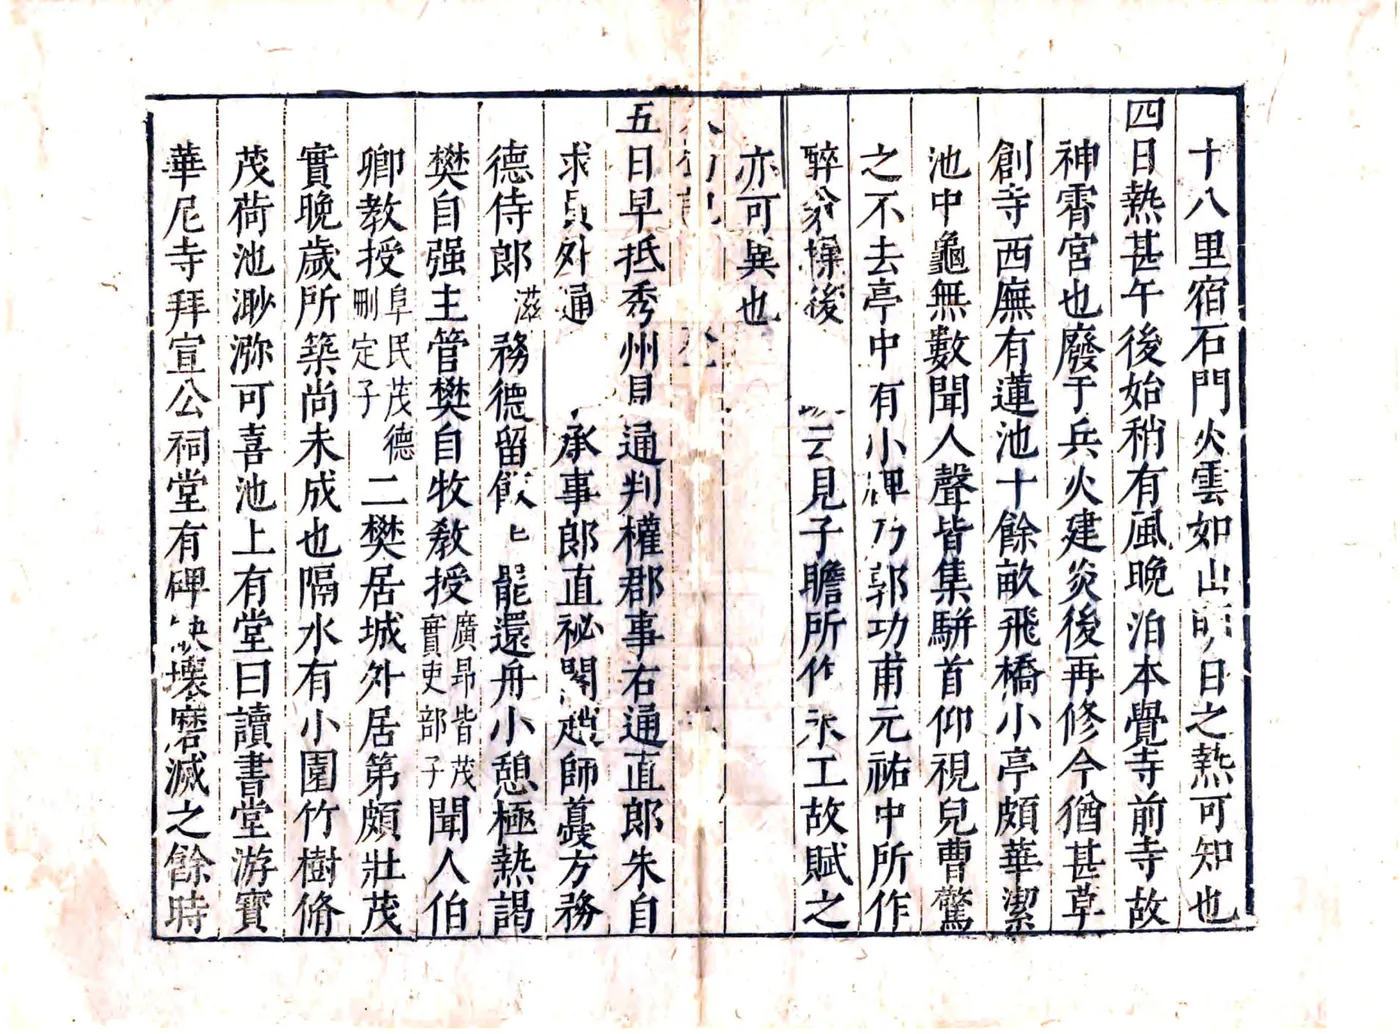 十八里宿石門火雲如山明日之熱可知也
四日熱甚午後始稍有風晚泊本覺寺前寺故
神霄宮也廢于兵火建炎後再修今猶甚草
創寺西廡有蓮池十餘畝飛橋小亭頗華潔
池中龜無數聞人聲皆集駢首仰視兒曹驚
之不去亭中有小碑乃郭功甫元祐中所作
醉翁操後云見子瞻所作未工故賦之
亦可異也
五日早抵秀州見通判權郡事右通直郎朱自
求員外通承事郎直祕閣趙師夔方務
德侍郎滋務德留飯飯罷還舟小憩極熱謁
樊自强主管樊自牧教授廣昂皆茂實吏部子聞人伯
卿教授阜民茂德刪定子二樊居城外居第頗壯茂
實晚歲所築尚未成也隔水有小園竹樹脩
茂荷池渺瀰可喜池上有堂曰讀書堂游寶
華尼寺拜宣公祠堂有碑缺壞磨滅之餘時